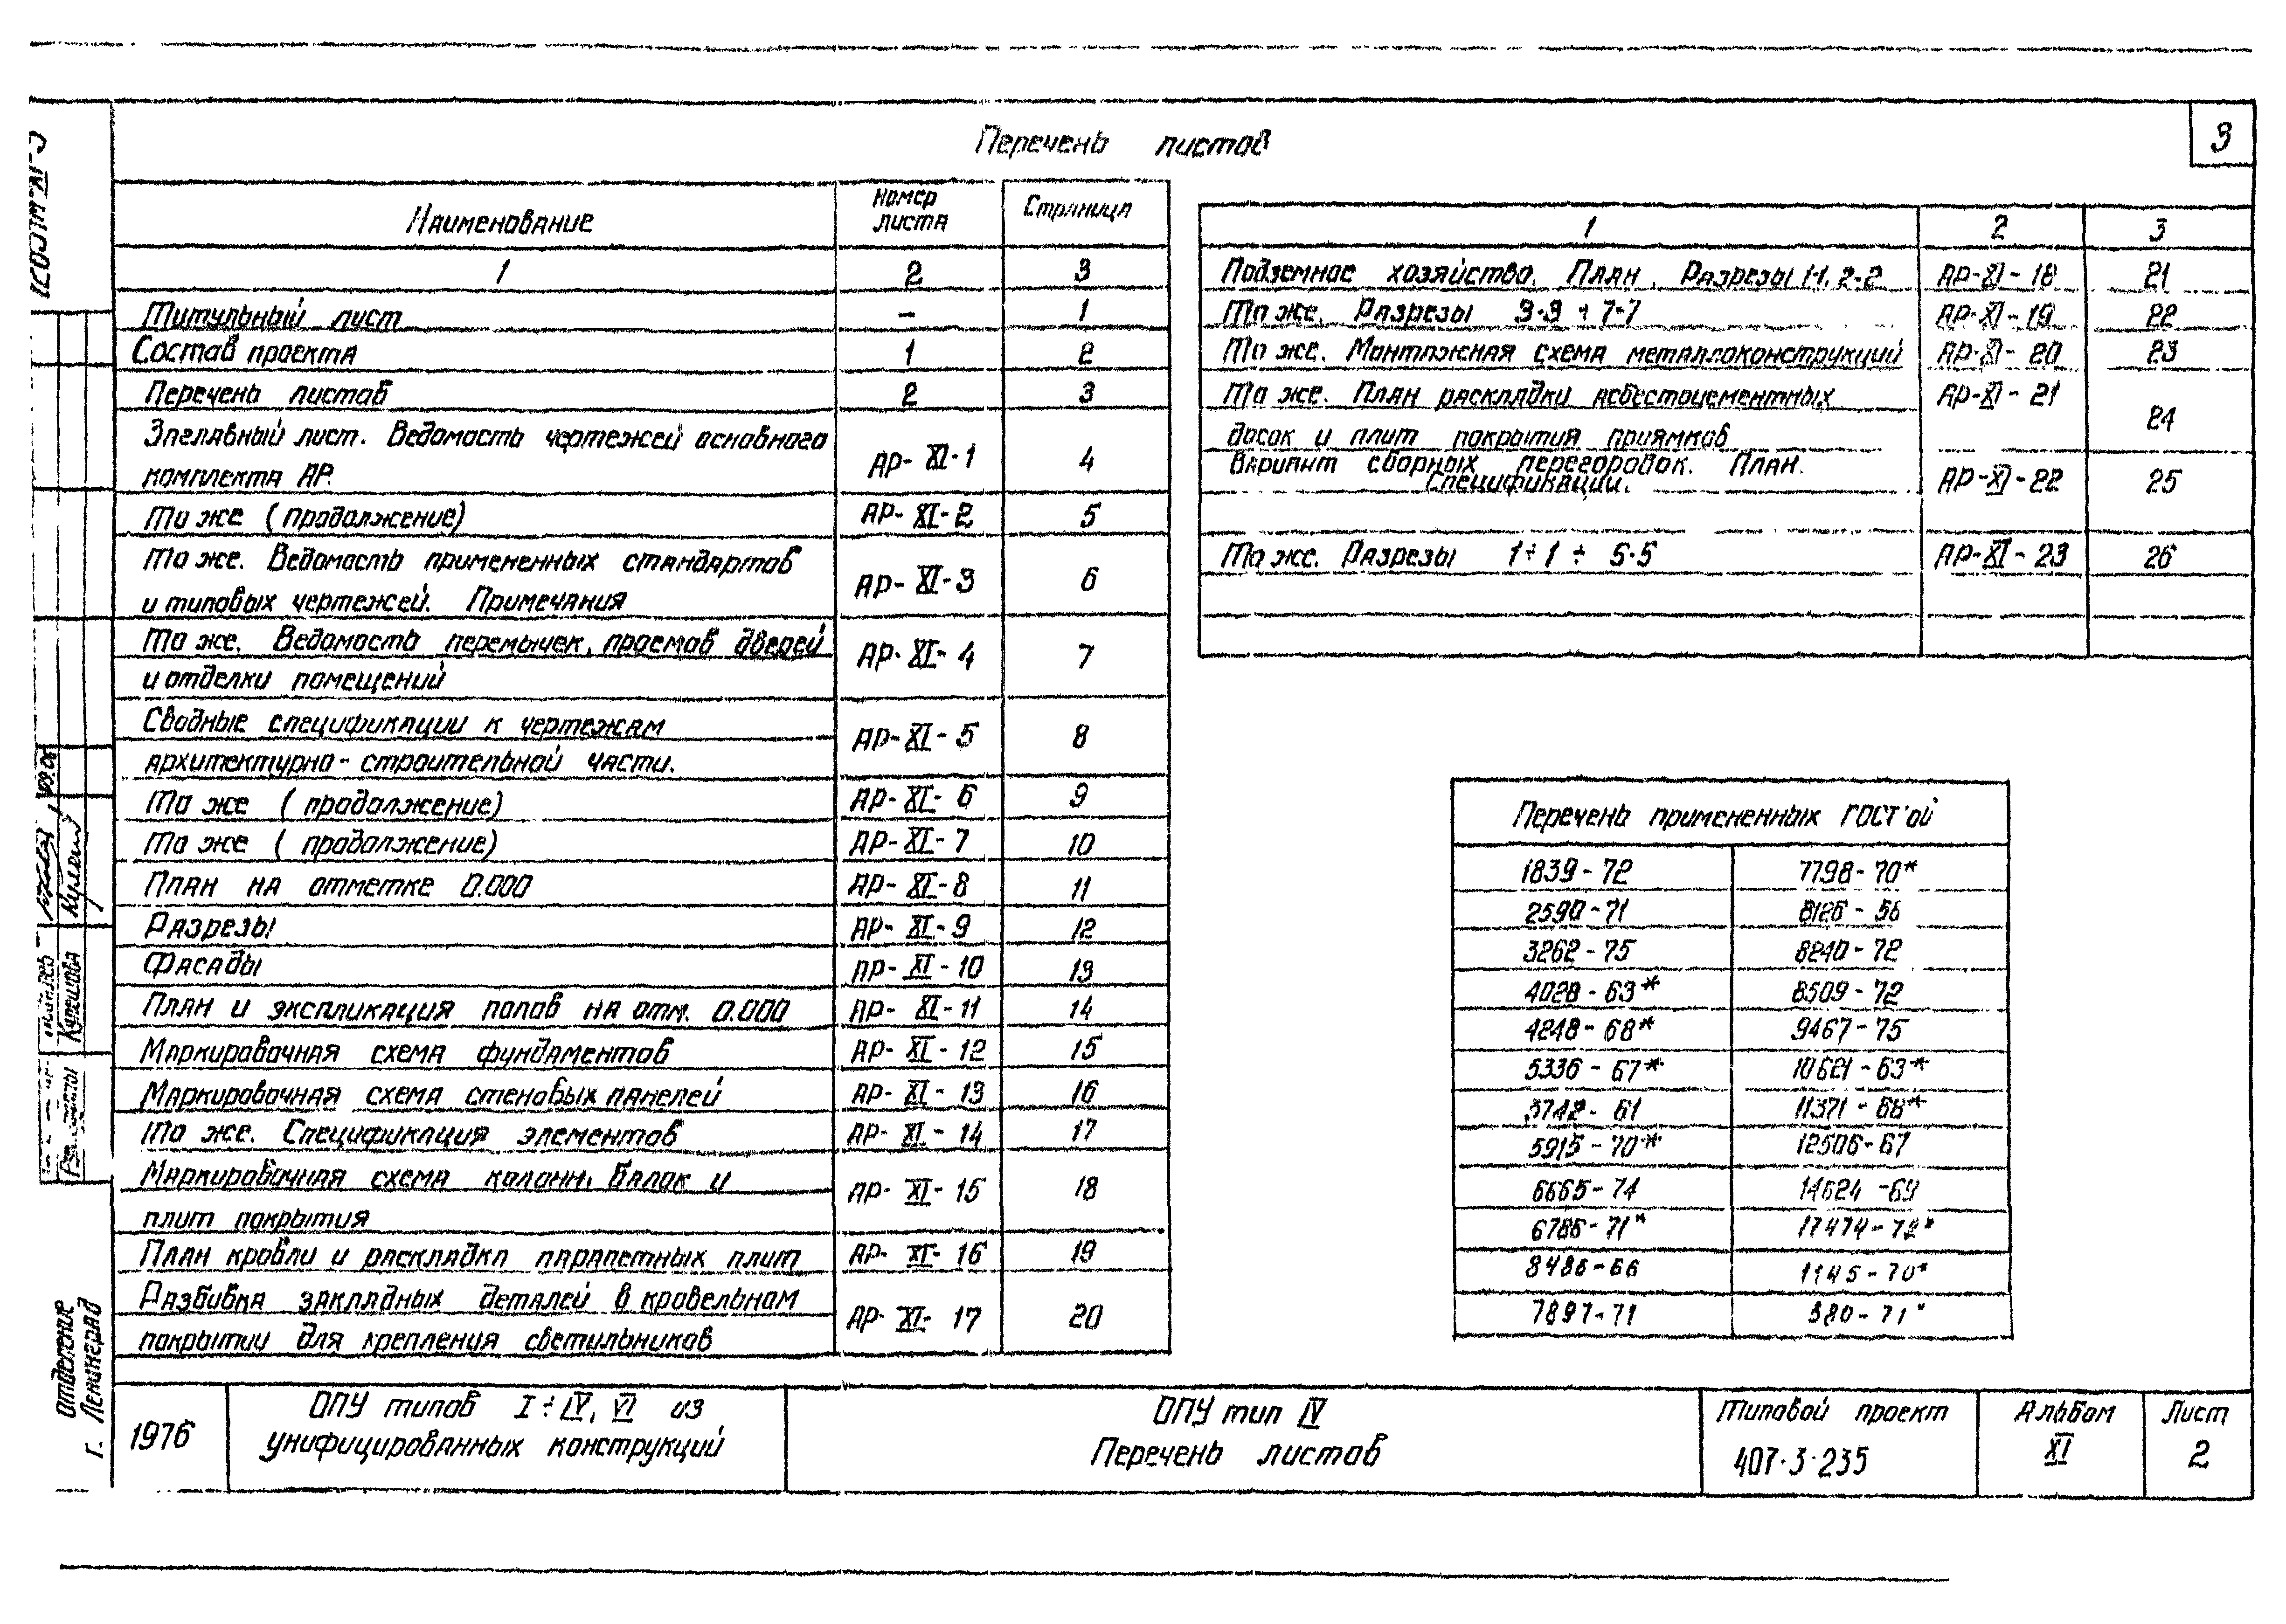 3
Перечень листов
Наименование Номер листа Страница
1 2 3
Титульный лист - 1
Состав проекта 1 2
Перечень листов 2 3
Заглавный лист. Ведомость чертежей основного
комплекта АР. АР-XI-1 4
То же (продолжение) АР-XI-2 5
То же. Ведомость примененных стандартов
и типовых чертежей. Примечания АР-XI-3 6
То же. Ведомость перемычек, проемов дверей
и отделки помещений АР-XI-4 7
Сводные спецификации к чертежам
архитектурно-строительной части. АР-XI-5 8
То же (продолжение) АР-XI-6 9
То же (продолжение) АР-XI-7 10
План на отметке 0.000 АР-XI-8 11
Разрезы АР-XI-9 12
Фасады АР-XI-10 13
План и экспликация полов на отм. 0.000 АР-XI-11 14
Маркировочная схема фундаментов АР-XI-12 15
Маркировочная схема стеновых панелей АР-XI-13 16
То же. Спецификация элементов АР-XI-14 17
Маркировочная схема колонн, балок и
плит покрытия АР-XI-15 18
План кровли и раскладка парапетных плит АР-XI-16 19
Разбивка закладных деталей в кровельном
покрытии для крепления светильников АР-XI-17 20
1 2 3
Подземное хозяйство. План. Разрезы 1-1, 2-2 АР-XI-18 21
То же. Разрезы 3-3 ÷ 7-7 АР-XI-19 22
То же. Монтажная схема металлоконструкций АР-XI-20 23
То же. План раскладки асбестоцементных АР-XI-21
досок и плит покрытия приямков 24
Вариант сборных перегородок. План.
Спецификации. АР-XI-22 25
То же. Разрезы 1÷1 ÷ 5-5 АР-XI-23 26
Перечень примененных ГОСТ'ой
1839-72 7798-70*
2590-71 8126-56
3262-75 8240-72
4028-63* 8509-72
4248-68* 9467-75
5336-67* 10621-63*
5742-61 11371-68*
5915-70* 12506-67
6665-74 14624-69
6786-71* 17474-72*
8486-66 1145-70*
7897-71 380-71*
Отделение
г. Ленинград
Капешова
1976
ОПУ типов I÷IV, VI из
унифицированных конструкций
ОПУ тип IV
Перечень листов
Типовой проект
407-3-235
Альбом
XI
Лист
2